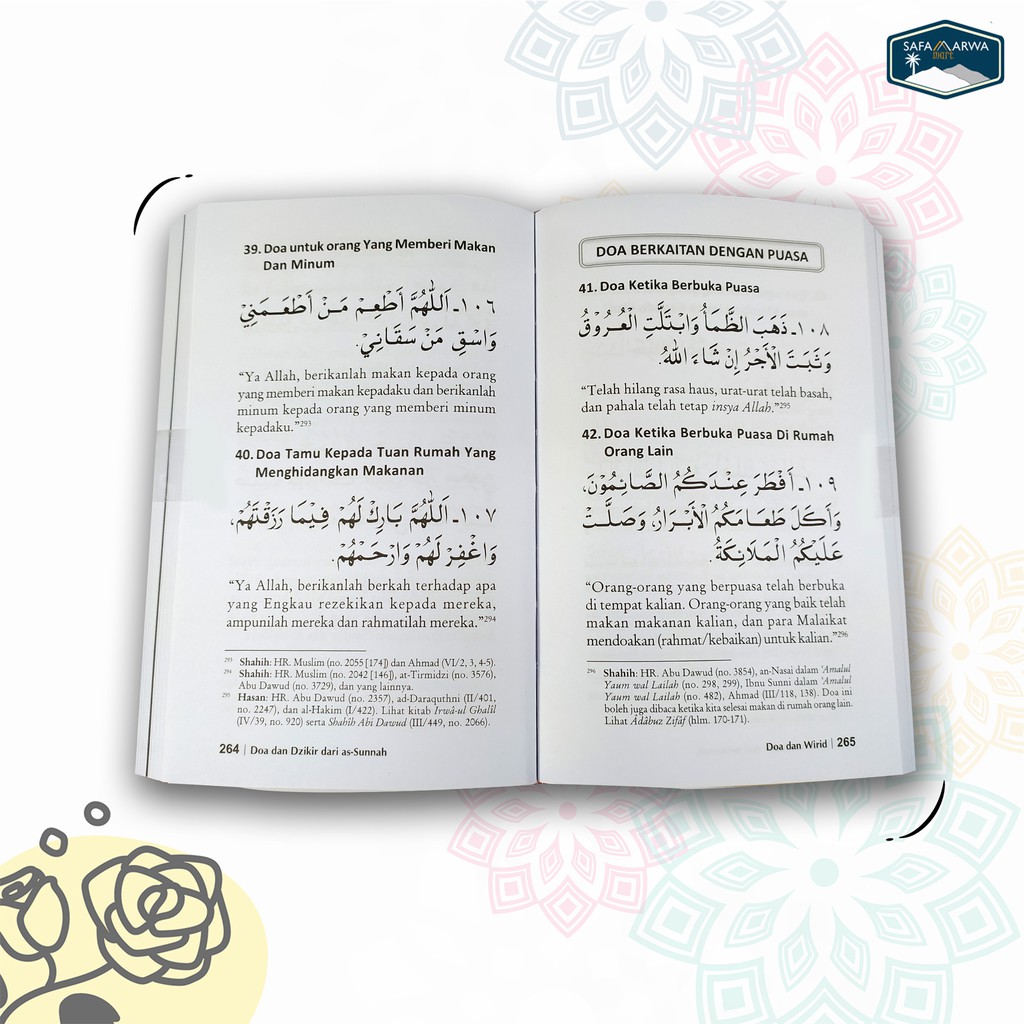 SAFA MARWA
mart
39. Doa untuk orang Yang Memberi Makan
Dan Minum
١٠٦ـ اَللّٰهُمَّ أَطْعِمْ مَنْ أَطْعَمَنِيْ
وَاسْقِ مَنْ سَقَانِيْ.
“Ya Allah, berikanlah makan kepada orang
yang memberi makan kepadaku dan berikanlah
minum kepada orang yang memberi minum
kepadaku.”293
40. Doa Tamu Kepada Tuan Rumah Yang
Menghidangkan Makanan
١٠٧ـ اَللّٰهُمَّ بَارِكْ لَهُمْ فِيْمَا رَزَقْتَهُمْ،
وَاغْفِرْ لَهُمْ وَارْحَمْهُمْ.
“Ya Allah, berikanlah berkah terhadap apa
yang Engkau rezekikan kepada mereka,
ampunilah mereka dan rahmatilah mereka.”294
293 Shahih: HR. Muslim (no. 2055 [174]) dan Ahmad (VI/2, 3, 4-5).
294 Shahih: HR. Muslim (no. 2042 [146]), at-Tirmidzi (no. 3576),
Abu Dawud (no. 3729), dan yang lainnya.
295 Hasan: HR. Abu Dawud (no. 2357), ad-Daraquthni (II/401,
no. 2247), dan al-Hakim (I/422). Lihat kitab Irwâ-ul Ghalîl
(IV/39, no. 920) serta Shahîh Abi Dawud (III/449, no. 2066).
264 | Doa dan Dzikir dari as-Sunnah
DOA BERKAITAN DENGAN PUASA
41. Doa Ketika Berbuka Puasa
١٠٨ـ ذَهَبَ الظَّمَأُ وَابْتَلَّتِ الْعُرُوْقُ
وَثَبَتَ الْأَجْرُ إِنْ شَاءَ اللهُ.
“Telah hilang rasa haus, urat-urat telah basah,
dan pahala telah tetap insya Allah.”295
42. Doa Ketika Berbuka Puasa Di Rumah
Orang Lain
١٠٩ـ أَفْطَرَ عِنْدَكُمُ الصَّائِمُوْنَ،
وَأَكَلَ طَعَامَكُمُ الْأَبْرَارُ، وَصَلَّتْ
عَلَيْكُمُ الْمَلَائِكَةُ.
“Orang-orang yang berpuasa telah berbuka
di tempat kalian. Orang-orang yang baik telah
makan makanan kalian, dan para Malaikat
mendoakan (rahmat/kebaikan) untuk kalian.”296
296 Shahih: HR. Abu Dawud (no. 3854), an-Nasai dalam ‘Amalul
Yaum wal Lailah (no. 298, 299), Ibnu Sunni dalam ‘Amalul
Yaum wal Lailah (no. 482), Ahmad (III/118, 138). Doa ini
boleh juga dibaca ketika kita selesai makan di rumah orang lain.
Lihat Âdâbuz Zifâf (hlm. 170-171).
Doa dan Wirid | 265